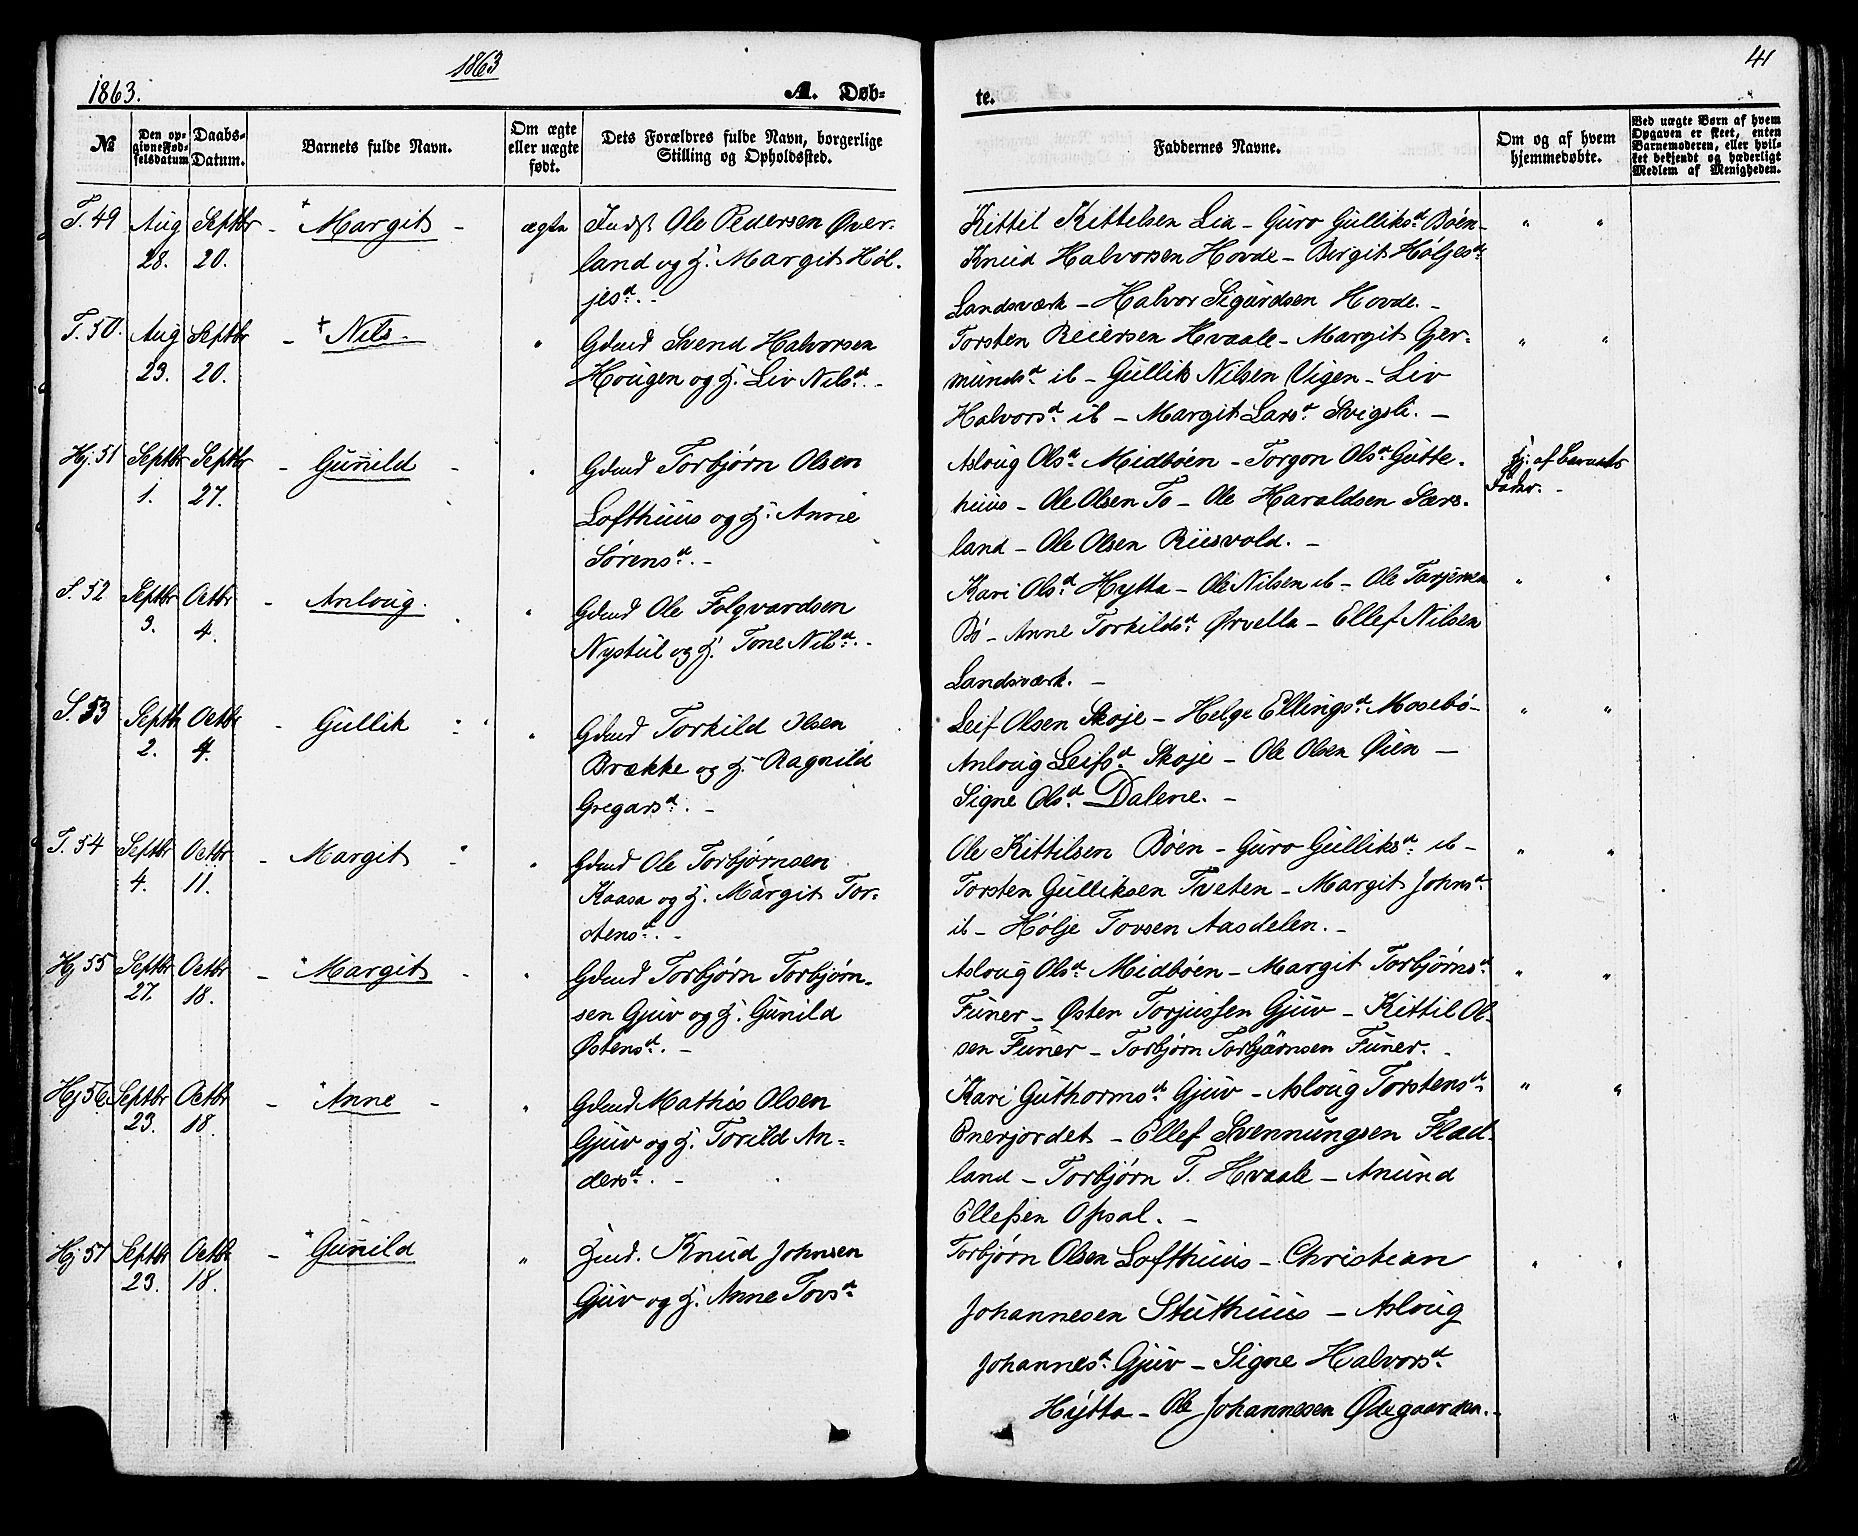 1863
41
1863.
A. Døb-
te.
№
Den op-
givne Fød-
selsdatum.
Daabs-
Datum.
Barnets fulde Navn.
Om ægte
eller uægte
født.
Dets Forældres fulde Navn, borgerlige
Stilling og Opholdssted.
Faddernes Navne.
Om og af hvem
hjemmedøbte.
Ved uægte Børn af hvem
Opgaven er skeet, enten
Barnemoderen, eller hvil-
ket bekjendt og hæderligt
Medlem af Menigheden.
T. 49 Aug 28. Septbr 20. - Margit - ægte
Indst Ole Pedersen Øver-
land og H. Margit Høl-
jesd. -
Kittil Kittelsen Lia - Guro Gulliksd Bøen -
Knud Halvorsen Hovde - Birgit Høljesd
Landsværk - Halvor Sigurdsen Hovde. -
T. 50. Aug 23. Septbr 20. - † Nils - "
Gdmd Svend Halvorsen
Hougen og H. Liv Nilsd. -
Torsten Reiersen Hvaale - Margit Gjer-
mundsd ib - Gullik Nilsen Vigen - Liv
Halvorsd ib - Margit Larsd Svigsli. -
Hj. 51 Septbr 1. Septbr 27. - Gunild - "
Gdmd Torbjørn Olsen
Lofthuus og H. Anne
Sørensd. -
Asloug Olsd Midbøen - Torgon Olsd Gutte-
huus - Ole Olsen To - Ole Haraldsen Særs-
land - Ole Olsen Riisvold. -
Hj. af Barnets
Fader. -
S. 52 Septbr 3. Octbr 4. - Anloug. "
Gdmd Ole Folqvardsen
Nystul og H. Tone Nilsd. -
Kari Olsd Hytta - Ole Nilsen ib - Ole Tarjeisen
Bö - Anne Torkildsd Ørvella - Ellef Nilsen
Landsværk. -
S. 53 Septbr 2. Octbr 4. - Gullik "
Gdmd Torkild Olsen
Brække og H. Ragnild
Gregarsd. -
Leif Olsen Skoje - Helge Ellingsd Mosebø -
Anloug Leifsd Skoje - Ole Olsen Øien -
Signe Olsd Dalene. -
T. 54 Septbr 4. Octbr 11. - Margit "
Gdmd Ole Torbjørnsen
Kaasa og H. Margit Tor-
stensd. -
Ole Kittilsen Bøen - Guro Gulliksd ib -
Torsten Gulliksen Tveten - Margit Johnsd
ib - Hølje Tovsen Aasdelen. -
Hj 55 Septbr 27. Octbr 18. - Margit - "
Gdmd Torbjørn Torbjørn-
sen Gjuv og H. Gunild
Østensd. -
Asloug Olsd Midbøen - Margit Torbjørnsd
Funer - Østen Torjussen Gjuv - Kittil Ol-
sen Funer - Torbjørn Torbjørnsen Funer. -
Hj 56 Septbr 23. Octbr 18. - Anne - "
Gdmd Mathis Olsen
Gjuv og H. Torild An-
dersd. -
Kari Guthormsd Gjuv - Asloug Torstensd
Enerjordet - Ellef Svennungsen Flad-
land - Torbjørn T. Hvaale - Anund
Ellefsen Opsal. -
Hj 57 Septbr 23. Octbr 18. - Gunild "
Hmd. Knud Johnsen
Gjuv og H. Anne Tovsd
Torbjørn Olsen Lofthuus - Christian
Johannesen Stuthuus - Asloug
Johannesd Gjuv - Signe Halvorsd
Hytta - Ole Johannesen Ødegaarden. -